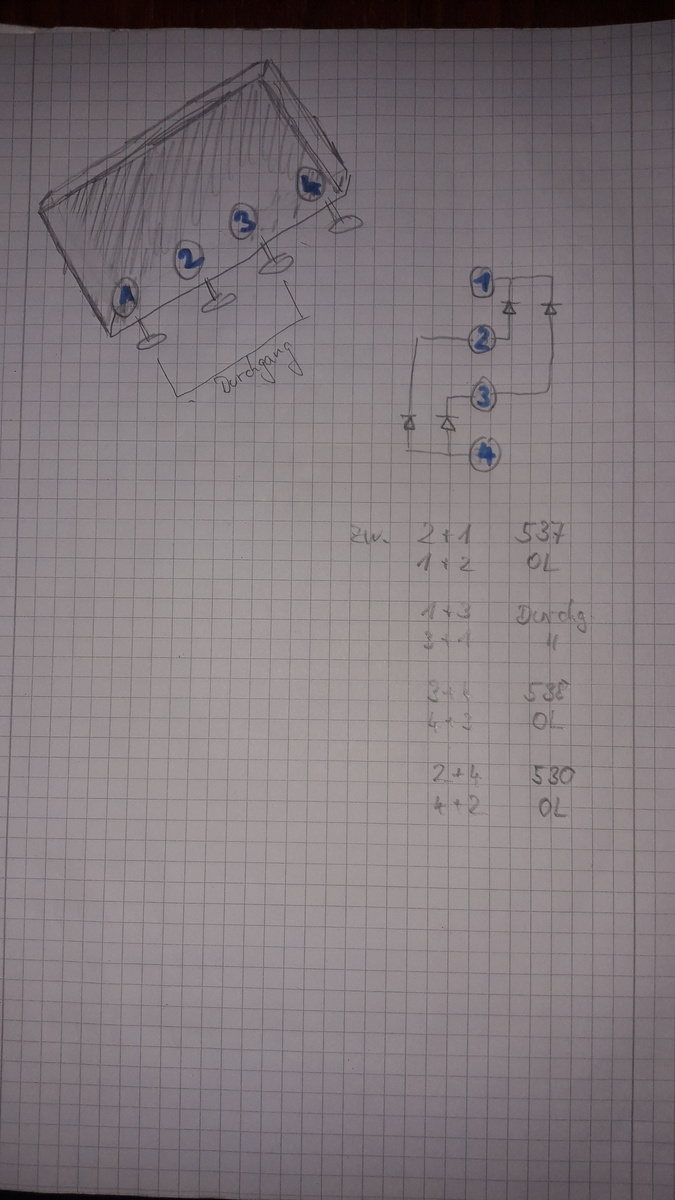 1
2
3
4
Durchgang
1
2
3
4
zw. 2+1 537
1+2 OL
1+3 Durchg.
3+1 "
3+4 538
4+3 OL
2+4 530
4+2 OL